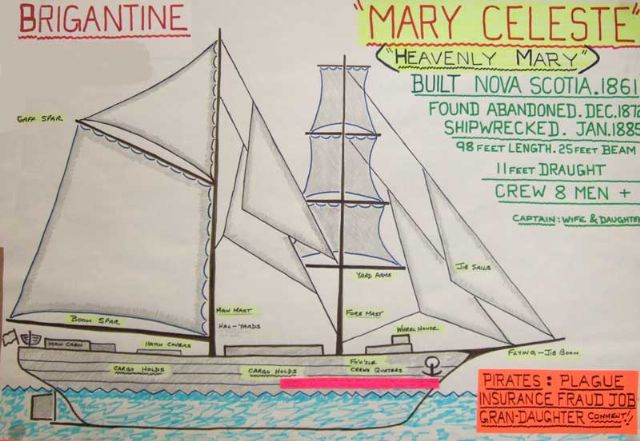 BRIGANTINE
"MARY CELESTE"
"HEAVENLY MARY"
BUILT NOVA SCOTIA.1861
FOUND ABANDONED. DEC.1872
SHIPWRECKED. JAN.1885
98 FEET LENGTH. 25 FEET BEAM
11 FEET DRAUGHT
CREW 8 MEN +
CAPTAIN: WIFE & DAUGHTER
GAFF SPAR
YARD ARMS
JIB SAILS
BOOM SPAR
MAIN MAST
HAL-YARDS
FORE MAST
WHEEL HOUSE
MAIN CABIN
HATCH COVERS
FLYING-JIB BOOM
CARGO HOLDS
CARGO HOLDS
FO'C'SLE
CREWS QUATERS
PIRATES: PLAGUE
INSURANCE FRAUD JOB
GRAN-DAUGHTER COMMENT!!